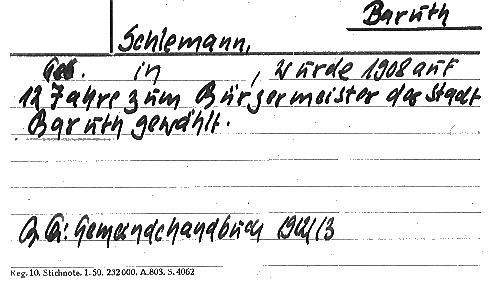 Baruth
Schlemann,
Geb. in , wurde 1908 auf
12 Jahre zum Bürgermeister der Stadt
Baruth gewählt.
Gemeindehandbuch 1912/13
Reg. 10. Stichnote. 1. 50. 232000. A.803. S. 4062